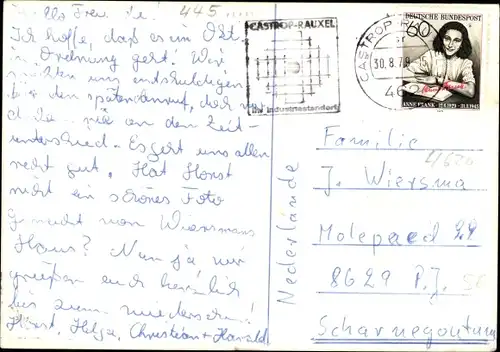 445
Ich hoffe, daß es im Okt.
in Ordnung geht! Wir
möchten uns entschuldigen
für den späten Anruf, doch
den Zeit-
unterschied. Es geht uns allen
recht gut. Hat Horst
nicht ein schönes Foto
gemacht von Wiersmas
Haus? Nun ja wir
grüßen euch herzlich
bis zum wiedersehen!
Horst, Helga, Christian + Harald
CASTROP-RAUXEL
Ihr Industriestandort
CASTROP-R
30.8.79-15
462
DEUTSCHE BUNDESPOST
60
ANNE FRANK 12.6.1929-31.3.1945
Familie
J. Wiersma
Molepaed 22
8629 P.J.
Scharnegoutum
Niederlande